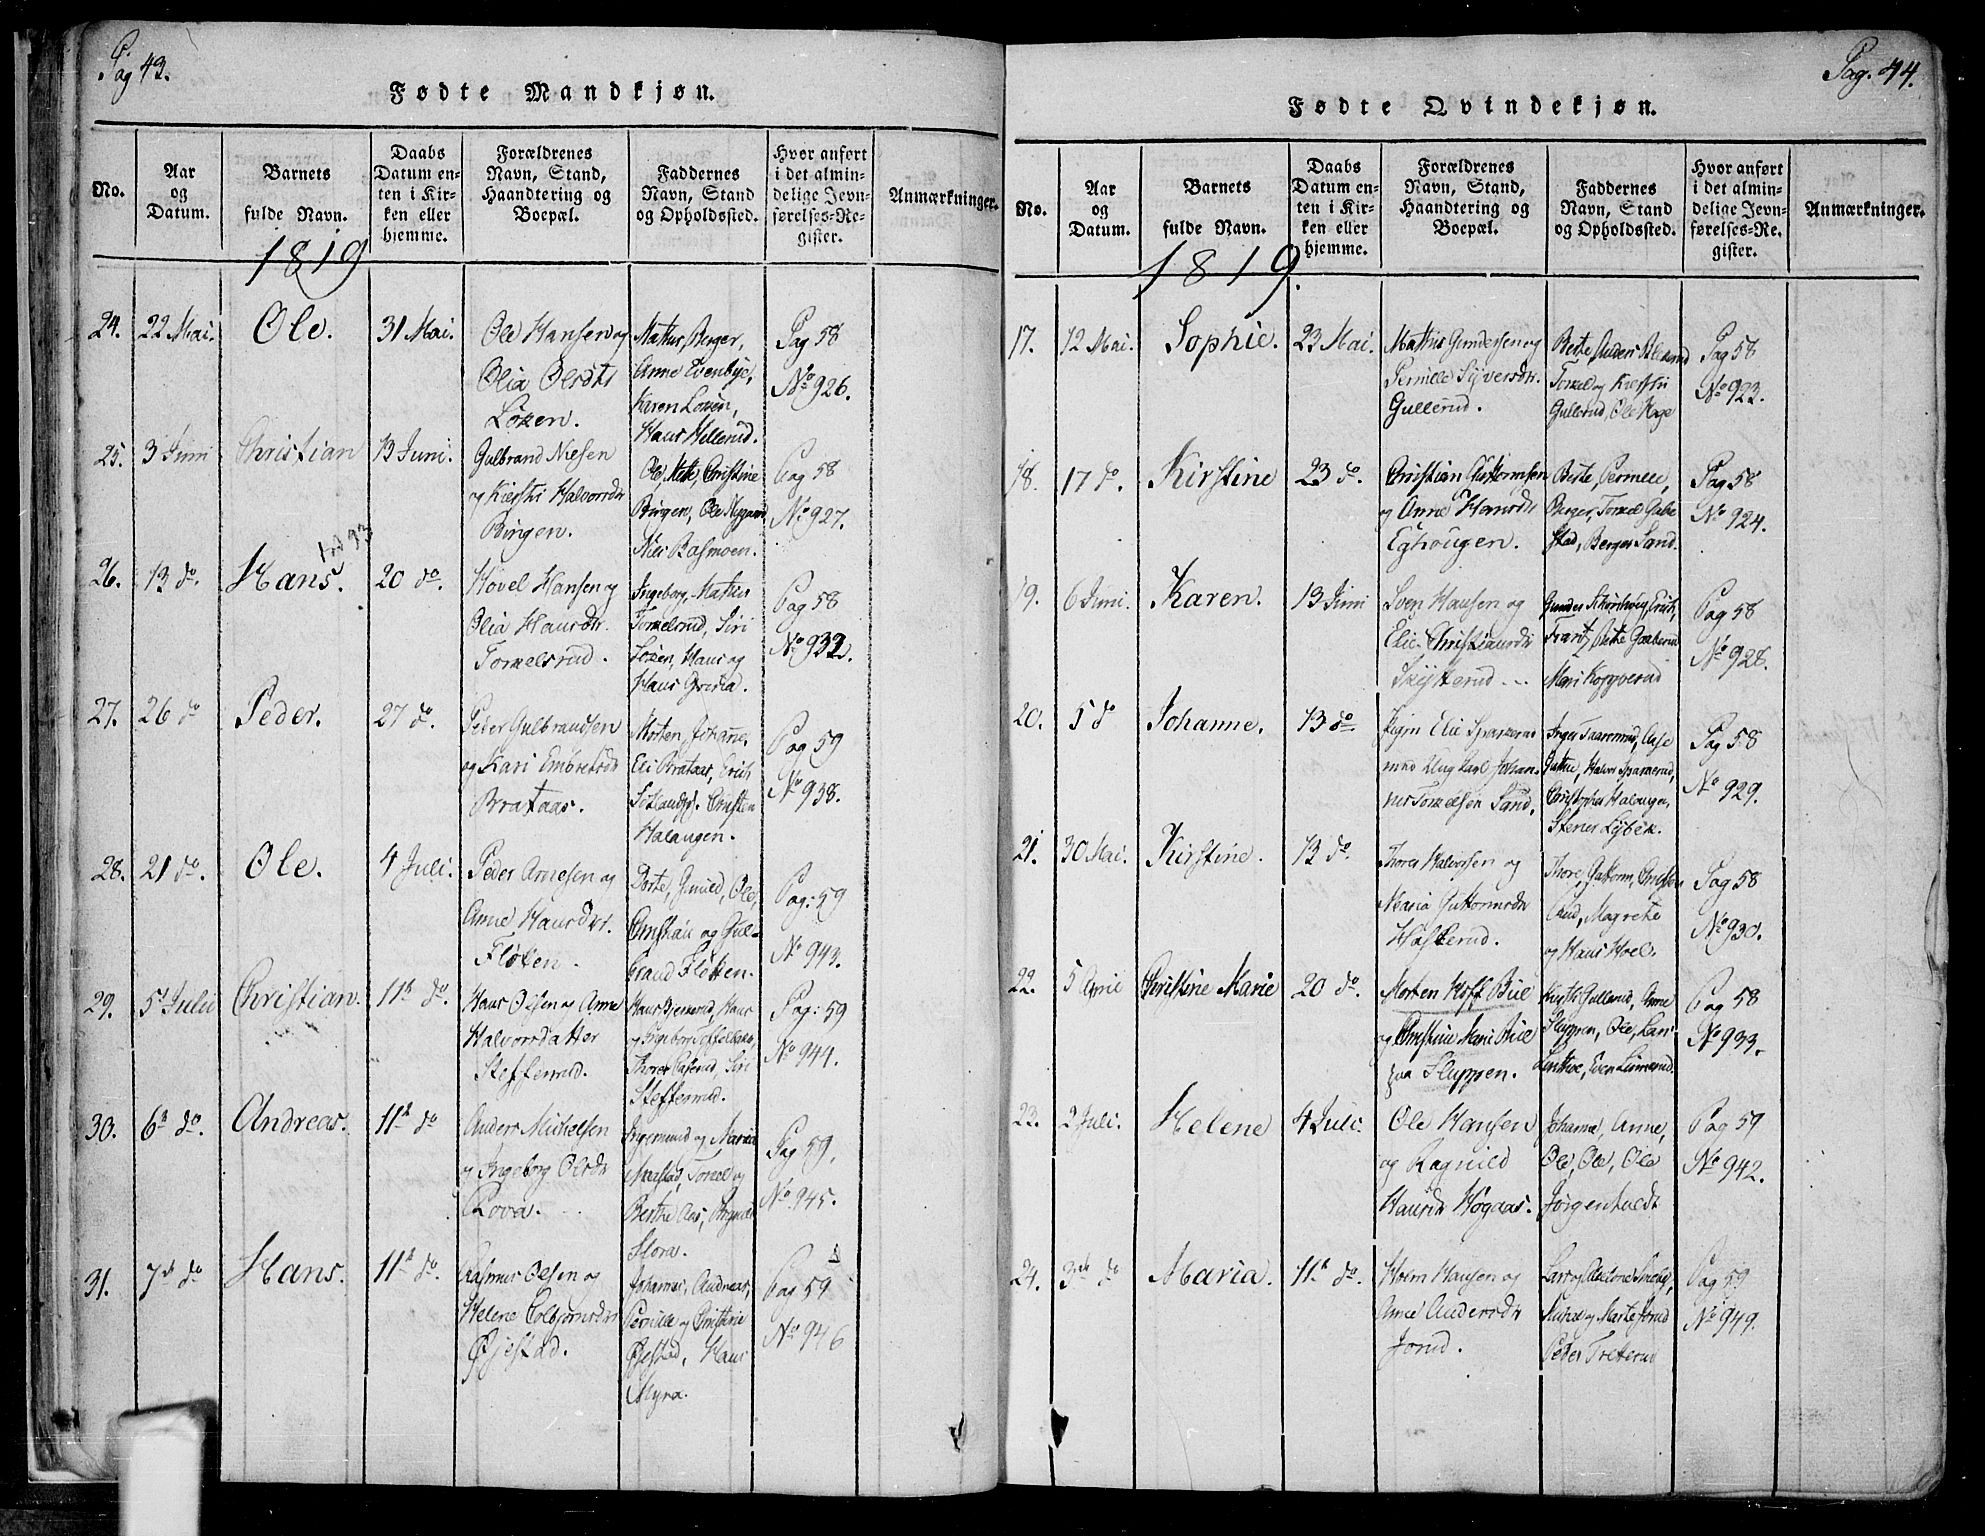 Pag 43.
Fødte Mandkjøn.
No.
Aar
og
Datum.
Barnets
fulde Navn.
Daabs
Datum en-
ten i Kir-
ken eller
hjemme.
Forældrenes
Navn, Stand,
Haandtering og
Boepæl.
Faddernes
Navn, Stand
og Opholdssted.
Hvor anført
i det almin-
delige Jevn-
førelses-Re-
gister.
Anmærkninger.
1819
24. 22 Mai. Ole. 31 Mai.
Ole Hansen og
Olia Olsdtr
Løken.
Anne Evenbye,
Hans Hillerud.
Pag 58
No 926.
25. 3 Juni Christian 13 Juni.
Gulbrand Nielsen
og Kiersti Halvorsdtr
Bingen.
Ole, Mette, Christine
Bingen, Ole Nygaard
Niels Basmoen.
Pag 58
No 927.
26. 13 do. Hans. 20 do.
Hovel Hansen og
Olia Hansdtr.
Torkelsrud.
Ingeborg, Mathis
Torkelsrud, Siri
Løken, Hans og
Pag 58
No 932.
27. 26 do Peder. 27 do.
Peder Gulbrandsen
og Kari Embretsdtr
Brataas.
Morten, Johanne,
Eli Brataas, Erich
Halaugen.
Pag 59
No 938.
28. 21 do. Ole. 4 Juli.
Peder Arnesen og
Anne Hansdtr.
Fløten.
Dorte, Gunild, Ole,
Christian og Gul-
brand Fløtten.
Pag: 59
No 943.
29. 5t Julii Christian. 11te do.
Hans Olsen og Anne
Halvorsdatter
Steffensrud.
Pag: 59
No 944.
30. 6te do. Andreas. 11te do
Anders Michelsen
og Ingeborg Olsdtr
Rova.
Ingemund og Maria
Berthe Aas,
Flora.
Pag 59.
No 945.
31. 7de do Hans. 11te do.
Rasmus Olsen og
Helene Colbjørnsdtr
Øjestad.
Johannes, Andreas,
Pernille og Christine
Øjestad, Hans
Myra.
Pag 59
No 946
Pag. 44.
Fødte Qvindekjøn.
No.
Aar
og
Datum.
Barnets
fulde Navn.
Daabs
Datum en-
ten i Kir-
ken eller
hjemme.
Forældrenes
Navn, Stand,
Haandtering og
Boepæl.
Faddernes
Navn, Stand
og Opholdssted.
Hvor anført
i det almin-
delige Jevn-
førelses-Re-
gister.
Anmærkninger.
1819.
17. 12 Mai. Sophie. 23 Mai.
Mathis Gundersen og
Pernille Syversdtr.
Gullerud.
Torkel og Kiersti
Gullerud, Ole Hage
Pag 58
No 923.
18. 17 do. Kirstine 23 do.
Christian Guttormsen
og Anne Hansdtr
Eghougen.
Berte, Pernille,
Berger, Torkel
stad, Berger Sand.
Pag 58
No 924.
19. 6 Juni. Karen. 13 Juni
Sven Hansen og
Elie Christiansdtr
Skytterud
Pag 58
No 928.
20. 5 do Johanne. 13 do
Pigen Elie Sparkerud
med Ung Karl Johan-
nes Torkelsen Sand.
Christopher Halaugen,
Stener Lybek.
Pag 58
No 929.
21. 30 Mai. Kirstine. 13 do.
Thorer Halvorsen og
Maria Guttormsdtr
Haslerud.
Thore, Guttorm, Christen
Rud, Magrete
og Hans Hoel.
Pag 58
No 930.
22. 5 April Christine Marie 20 do.
Morten Hoff Biel
og Christine Marie Biel
paa Fluppen.
Kiersti Gullerud, Anne
Fluppen, Ole, Lars
Pag 58
No 933.
23. 2 Juli. Helene 4 Juli.
Ole Hansen
og Ragnild
Hansdtr Høgaas.
Johanne, Anne,
Ole, Ole, Ole
Jørgenhuldt
Pag 59
No 942.
24. 3de do Maria. 11te do.
Holm Hansen og
Anne Andersdtr
Jorud.
og Marte Jorud
Peder Treterud
Pag 59
No 949.